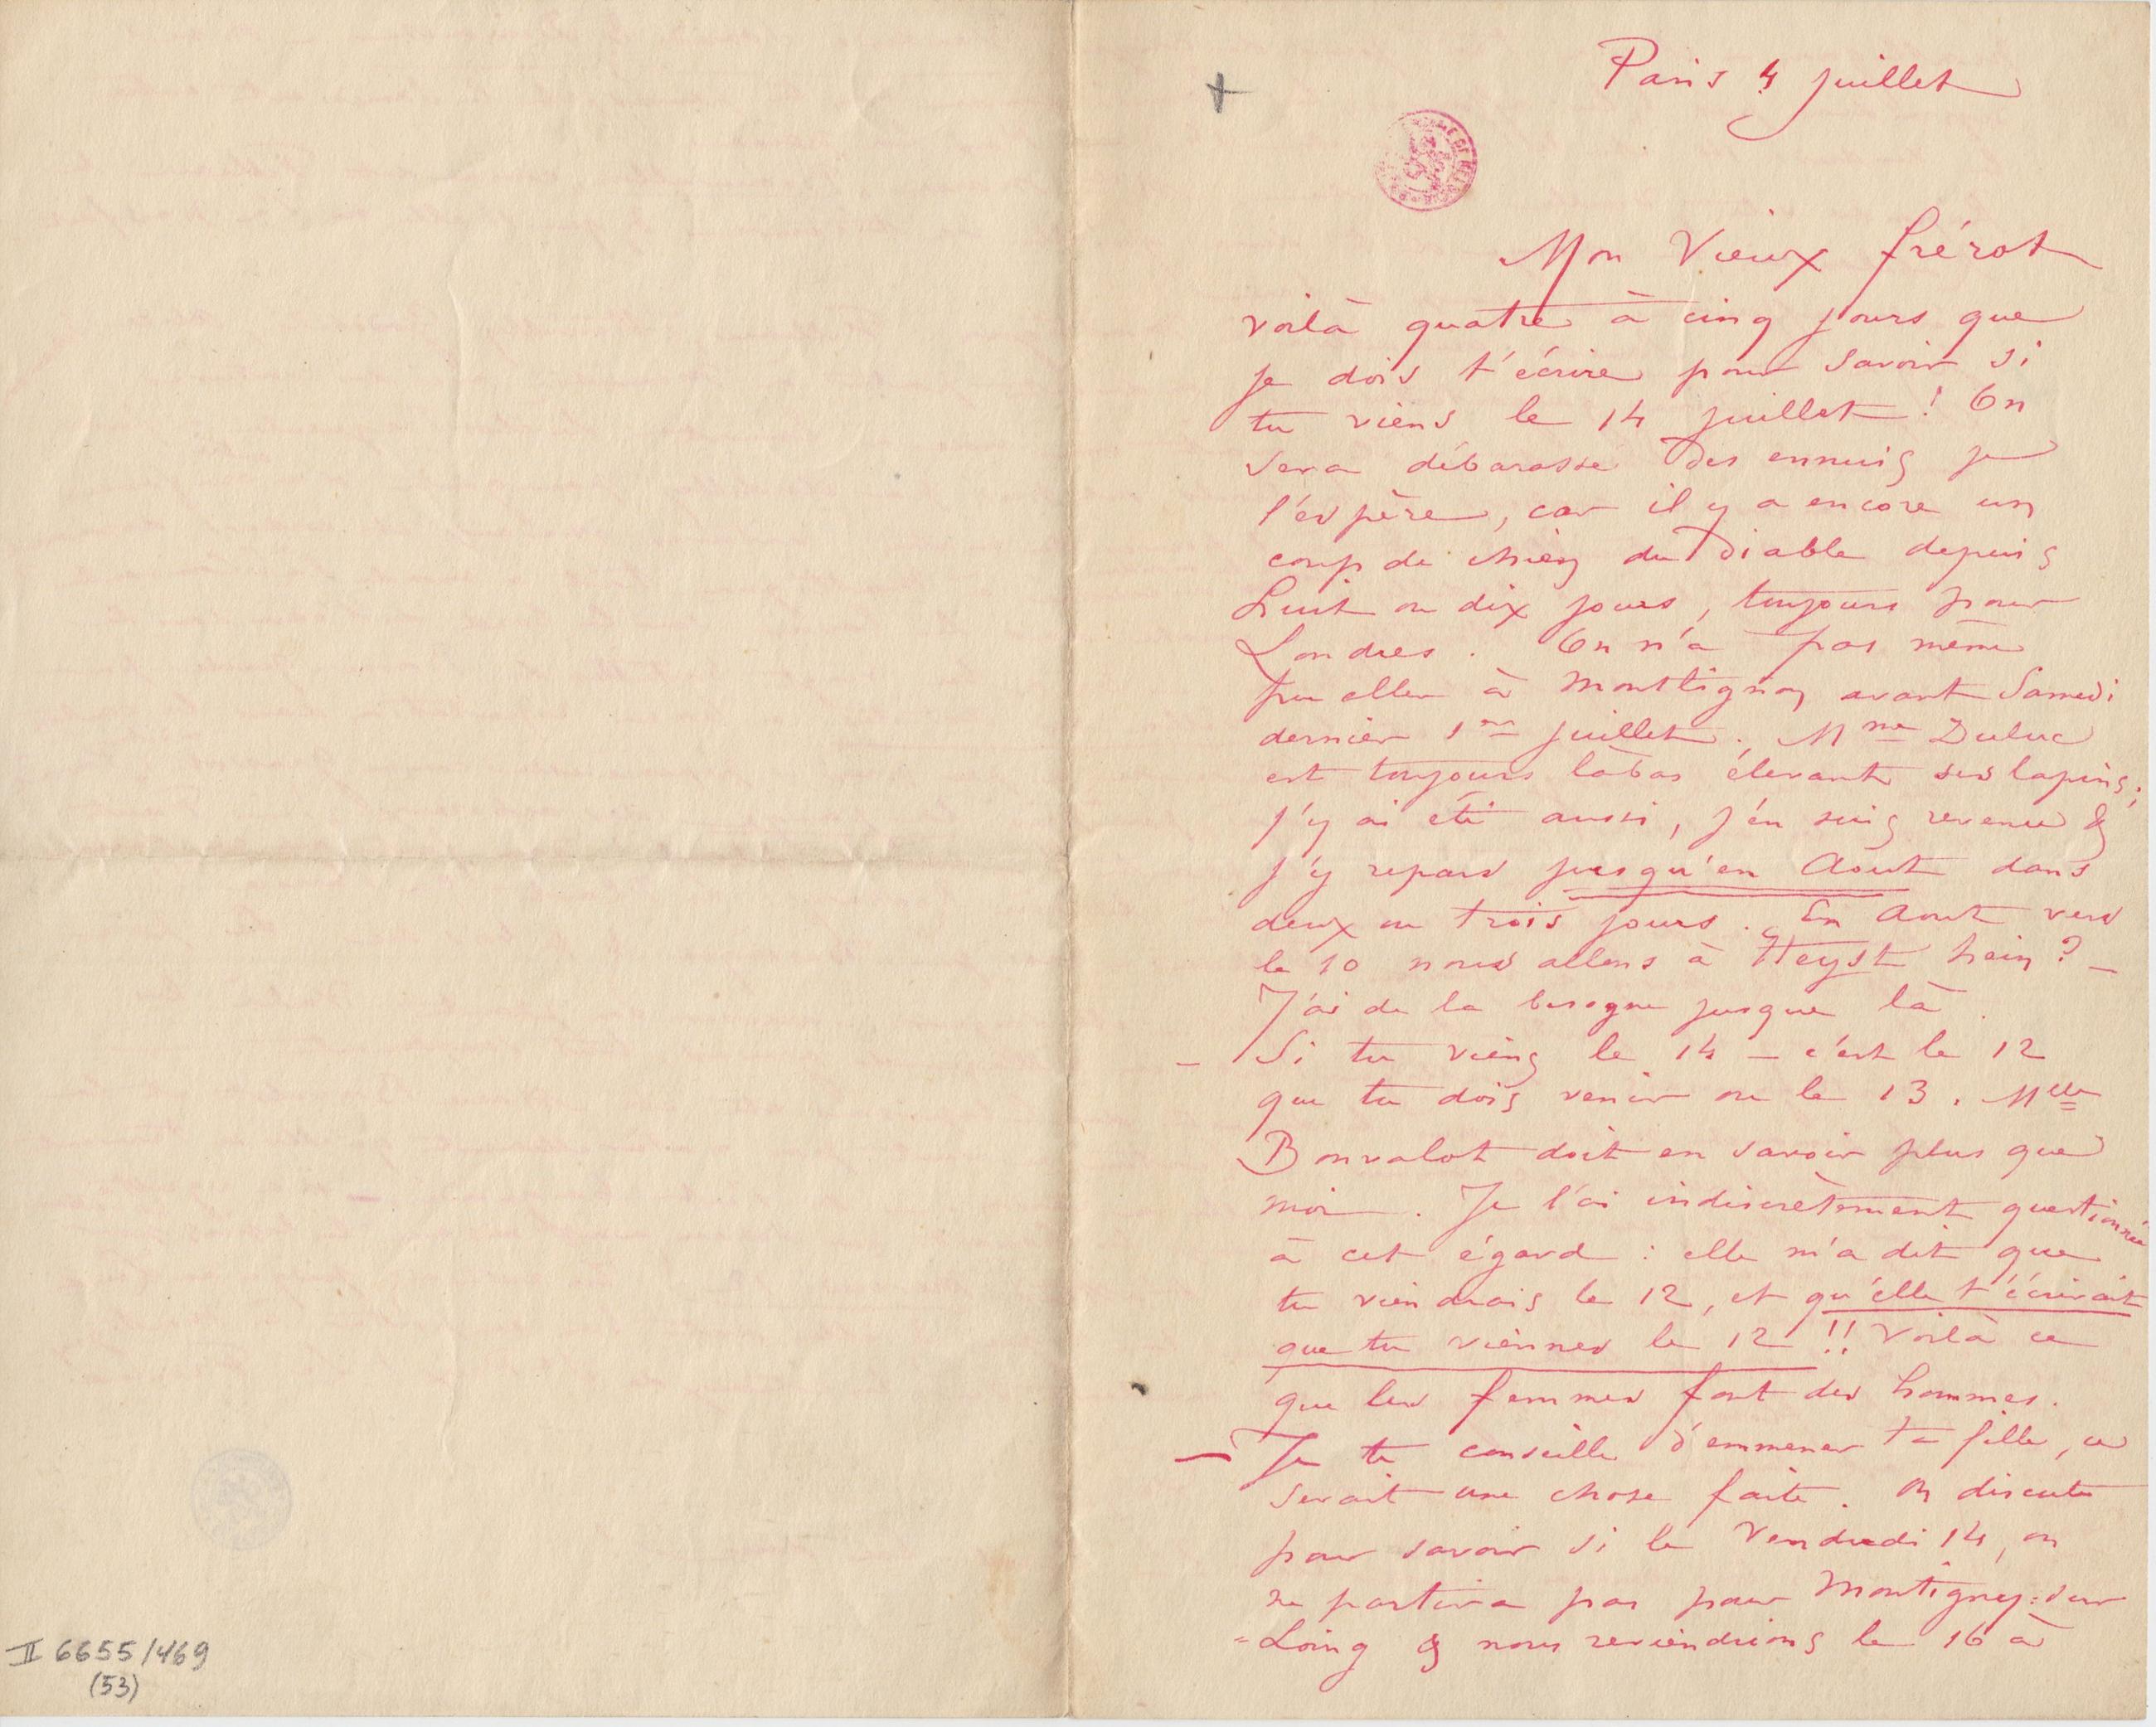 Paris 4 juillet
Mon Vieux frérot
voilà quatre à cinq jours que
je dois t'écrire pour savoir si
tu viens le 14 juillet ! On
sera débarassé des ennuis je
l'espère, car il y a encore un
coup de chien du Diable depuis
huit ou dix jours, toujours pour
Londres. On n'a pas même
pu aller à Montigny avant Samedi
dernier 1er juillet. Mme Duluc
est toujours làbas élevant ses lapins ;
j'y ai été aussi, j'en suis revenu &
j'y repars jusqu'en Aout dans
deux ou trois jours. En Aout vers
le 10 nous allons à Heyst hein ? _
J'ai de la besogne jusque là.
_ Si tu viens le 14 _ c'est le 12
que tu dois venir ou le 13. Melle
Bonvalot doit en savoir plus que
moi. Je l'ai indiscrètement questionnée
à cet égard : elle m'a dit que
tu viendrais le 12, et qu'elle t'écrivait
que tu viennes le 12 !! Voilà ce
que les femmes font des hommes.
_ Je te conseille d'emmener ta fille, ce
serait une chose faite. On discute
pour savoir si le Vendredi 14, on
ne partira pas pour Montigny-sur
=Loing & nous reviendrions le 16 à
II 6655/469
(53)